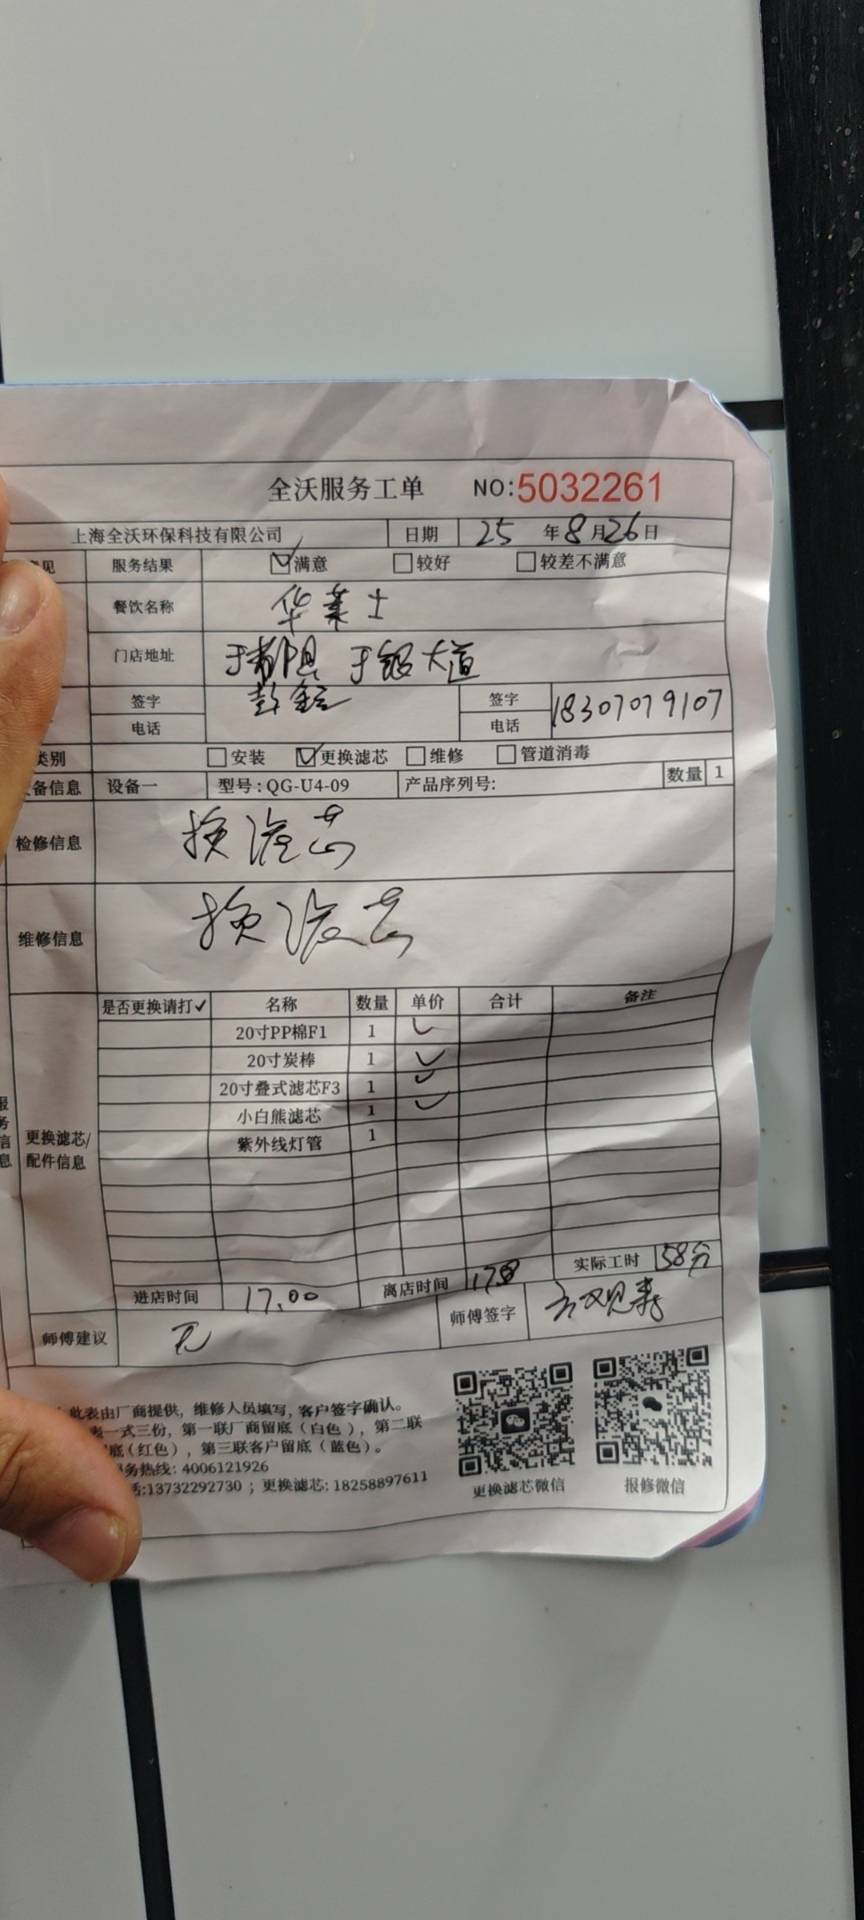 全沃服务工单 NO:5032261
上海全沃环保科技有限公司 日期 25 年 8 月 26 日
见 服务结果 ☑满意 □较好 □较差不满意
餐饮名称 华莱士
门店地址 于都县 于韶大道
签字 签字
电话 电话 18307079107
类别 □安装 ☑更换滤芯 □维修 □管道消毒
备信息 设备一 型号:QG-U4-09 产品序列号: 数量 1
检修信息 换滤芯
维修信息 换滤芯
是否更换请打✓ 名称 数量 单价 合计 备注
20寸PP棉F1 1 ✓
20寸炭棒 1 ✓
20寸叠式滤芯F3 1 ✓
小白熊滤芯 1 ✓
紫外线灯管 1
服务信息
更换滤芯/
配件信息
实际工时 58分
进店时间 17.00 离店时间 1758
师傅建议 无 师傅签字
此表由厂商提供，维修人员填写，客户签字确认。
表一式三份，第一联厂商留底（白色），第二联
底(红色)，第三联客户留底（蓝色）。
服务热线: 4006121926
:13732292730 ；更换滤芯: 18258897611
更换滤芯微信 报修微信